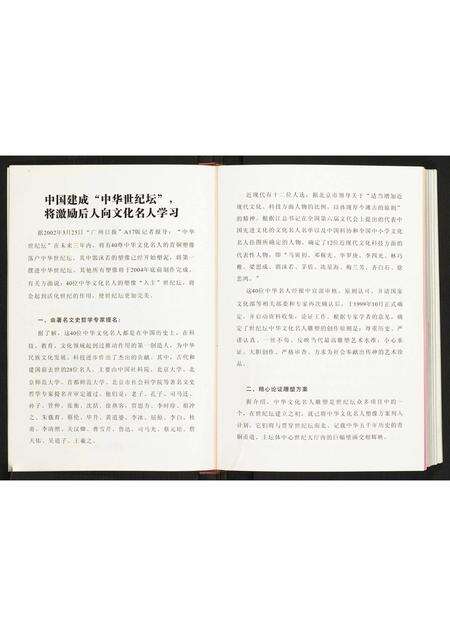 中国建成“中华世纪坛”，
将激励后人向文化名人学习
据2002年3月25日“广州日报”A17版记者报导：“中华
世纪坛”在未来三年内，将有40尊中华文化名人的青铜塑像
落户中华世纪坛。其中部沫若的塑像已经开始塑泥，将第一
摆进中华世纪坛。其他所有塑像将于2004年底前制作完成。
有关方面说：40位中华文化名人的塑像“入主”世纪坛，将
会起到活化世纪坛的作用，使世纪坛更加完美。
一、由著名文史哲学专家提名：
据了解，这40位中华文化名人都是在中国历史上，在科
技、教育、文化领域起到过推动作用的第一创造人，为中华
民族文化发展、科技进步作出了杰出的献献。其中，古代和
建国前去世的28位名人，主要由中国社科院、北京大学、北
京师范大学、首都师范大学、北京市社会科学院等著名文史
哲学专家提名并审定通过。他们是：老子、孔子、司马迁、
孙子、管仲、张衡、沈括、徐熙客、贾思勰、李时珍、祖冲
之、朱载堉、蔡伦、毕升、黄道婆、李冰、屈原、李白、杜
甫、李清照、关汉卿、曹雪芹、鲁迅、司马光、蔡元培、詹
天佑、吴道子、王羲之。
近现代有十二位人选：据北京市领导关于“适当增加近
现代文化、科技方面人物的比例，以体现厚今薄古的原则”
的精神，根据江总书记在全国第六届文代会上提出的代表中
国先进文化的文化名人名单以及中国科协和全国中小学文化
名人挂图所确定的人物，确定了12位近现代文化科技方面的
代表性人物，即“马寅初、邓稼先、华罗庚、李四光、林巧
稚、梁思成、郭沫若、茅盾、冼星海、梅兰芳、齐白石、徐
悲鸿。”
这40位中华名人经报中宣部审核，原则认可，并请国家
文化部等相关部委和专家再次确认后，于1999年10月正式确
定，并启动资料收集、论证工作。根据专家学者的意见，确
定了世纪坛中华文化名人雕塑的创作原则是：尊重历史、严
谨认真、一丝不苟、反映当代最高雕塑艺术水准，小心求
证、大胆创作、严格审查，方案为社会奉献出传神的艺术珍
品。
二、精心论证雕塑方案
据介绍，中华文化名人雕塑是世纪坛众多项目中的一
个，在世纪坛建立之初，就已将中华文化名人塑像方案列入
计划。它们将与贯穿世纪坛南北、记载中华五千年历史的青
铜甬道、主坛体中心世纪大厅内的巨幅壁画交相辉映。